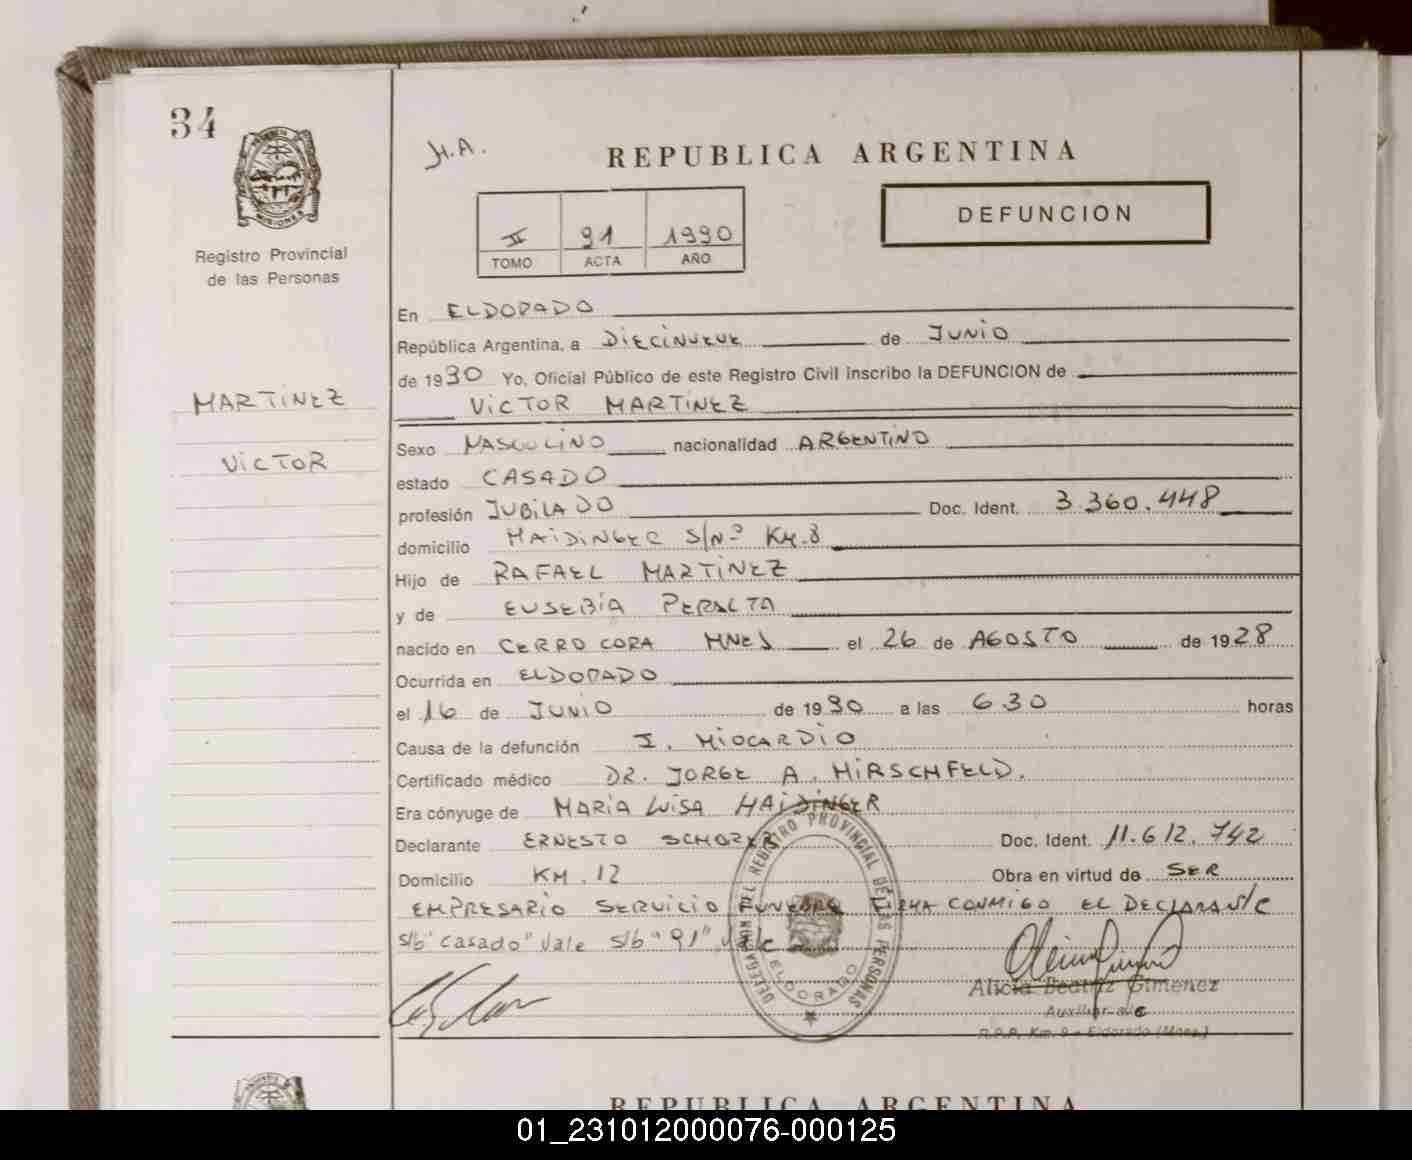 34
H.A.
REPUBLICA ARGENTINA
MISIONES
Registro Provincial
de las Personas
II 91 1990
TOMO ACTA AÑO
DEFUNCION
En ELDORADO
República Argentina, a DIECINUEVE de JUNIO
de 1990 Yo, Oficial Público de este Registro Civil inscribo la DEFUNCION de
MARTINEZ
VICTOR MARTINEZ
Sexo MASCULINO nacionalidad ARGENTINO
VICTOR
estado CASADO
profesión JUBILADO Doc. Ident. 3.360.448
domicilio HAIDINGER S/Nº KM.8
Hijo de RAFAEL MARTINEZ
y de EUSEBIA PERALTA
nacido en CERRO CORA MNES el 26 de AGOSTO de 1928
Ocurrida en ELDORADO
el 16 de JUNIO de 1990 a las 6.30 horas
Causa de la defunción I. MIOCARDIO
Certificado médico DR. JORGE A. HIRSCHFELD.
Era cónyuge de MARIA LUISA HAIDINGER
Declarante ERNESTO Doc. Ident. 11.612.742
Domicilio KM.12 Obra en virtud de SER
EMPRESARIO SERVICIO FUNEBRE FIRMA CONMIGO EL DECLARANTE
s/b "casado" Vale s/b "91" vale
DELEGACION DEL REGISTRO PROVINCIAL DE LAS PERSONAS
ELDORADO
Alicia Beatriz Gimenez
Auxiliar
R.P.P. Km. 9 - Eldorado (Mnes.)
REPUBLICA ARGENTINA
01_231012000076-000125